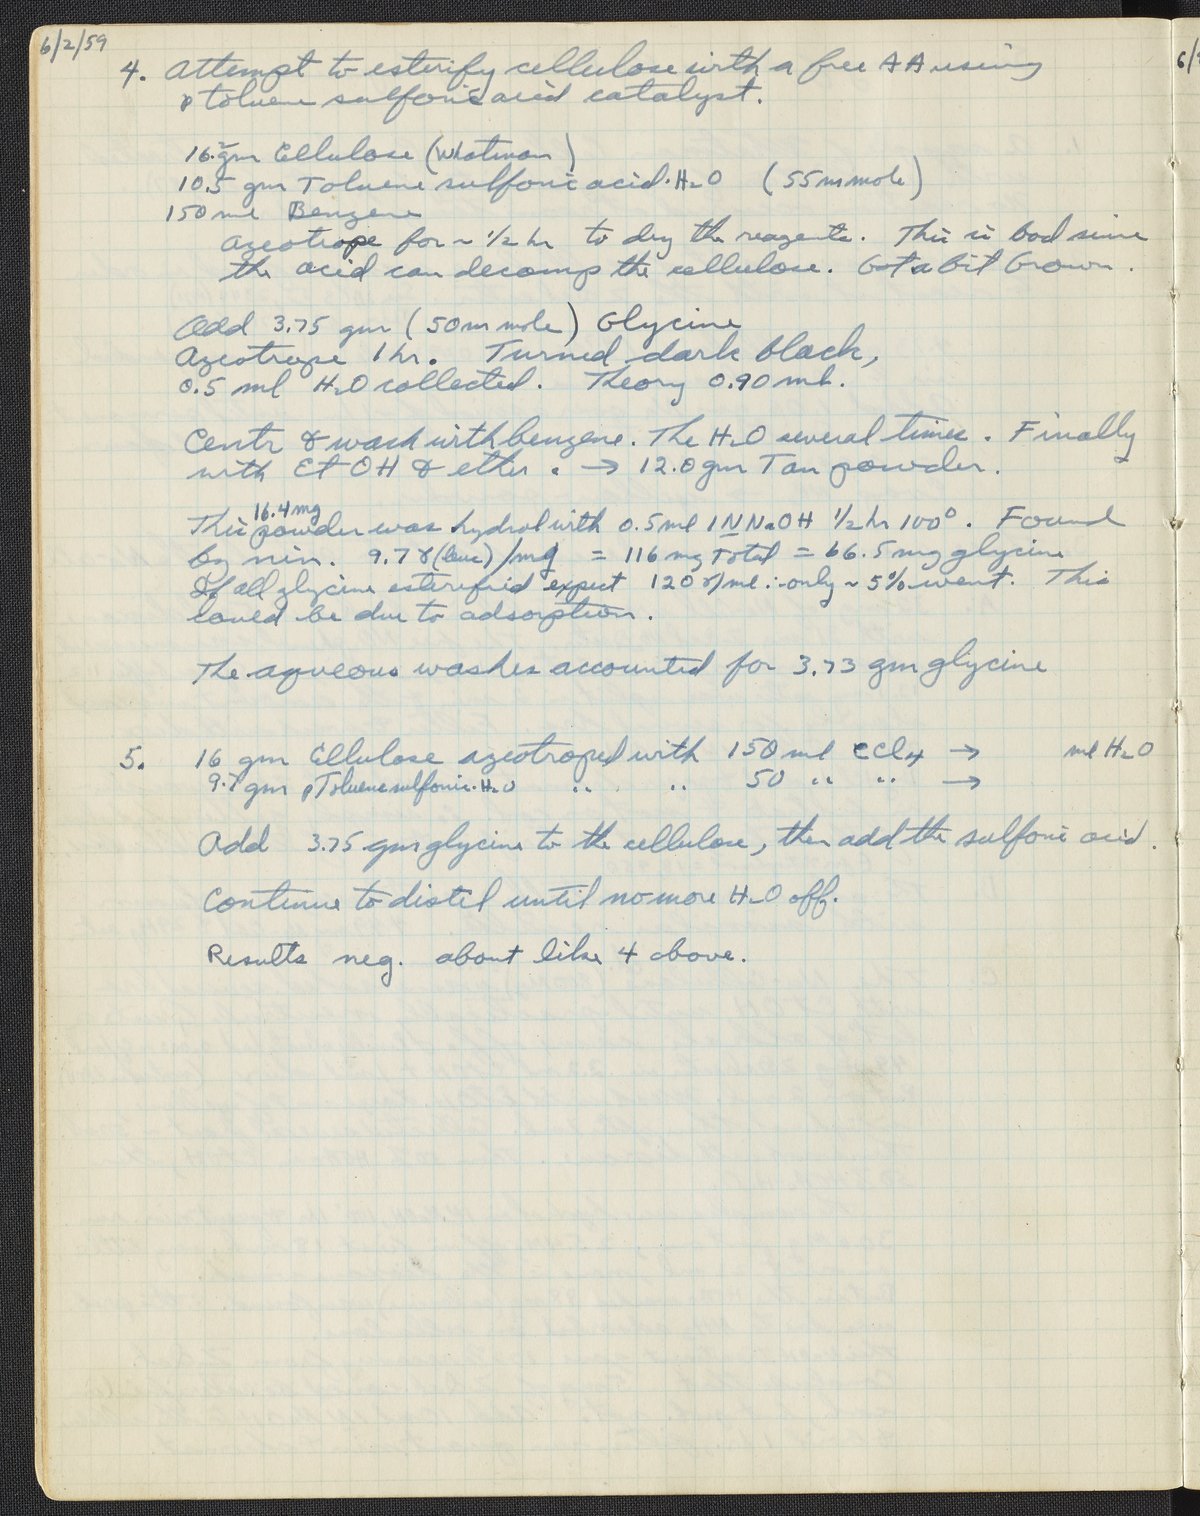 6/2/59
4. Attempt to esterify cellulose with a free AA using
p toluene sulfonic acid catalyst.
16. gm Cellulose (Whatman)
10.5 gm Toluene sulfonic acid·H2O (55 mmole)
150 ml Benzene
Azeotrope for ~ 1/2 hr to dry the reagents. This is bad since
the acid can decomp the cellulose. Got a bit brown.
Add 3.75 gm (50 m mole) Glycine
Azeotrope 1 hr. Turned dark black,
0.5 ml H2O collected. Theory 0.90 ml.
Centr & wash with benzene. The H2O several times. Finally
with Et OH & ether. → 12.0 gm Tan powder.
16.4 mg
This powder was hydrol with 0.5 ml 1N NaOH 1/2 hr 100°. Found
by nin. 9.7 γ (leuc)/mg = 116 mg Total = 66.5 mg glycine
If all glycine esterified expect 120 γ/ml ∴ only ~ 5% went. This
could be due to adsorption.
The aqueous washes accounted for 3.73 gm glycine
5. 16 gm Cellulose azeotroped with 150 ml CCl4 → ml H2O
9.7 gm pToluenesulfonic·H2O " " 50 " " →
Add 3.75 gm glycine to the cellulose, then add the sulfonic acid.
Continue to distil until no more H2O off.
Results neg. about like 4 above.
6/